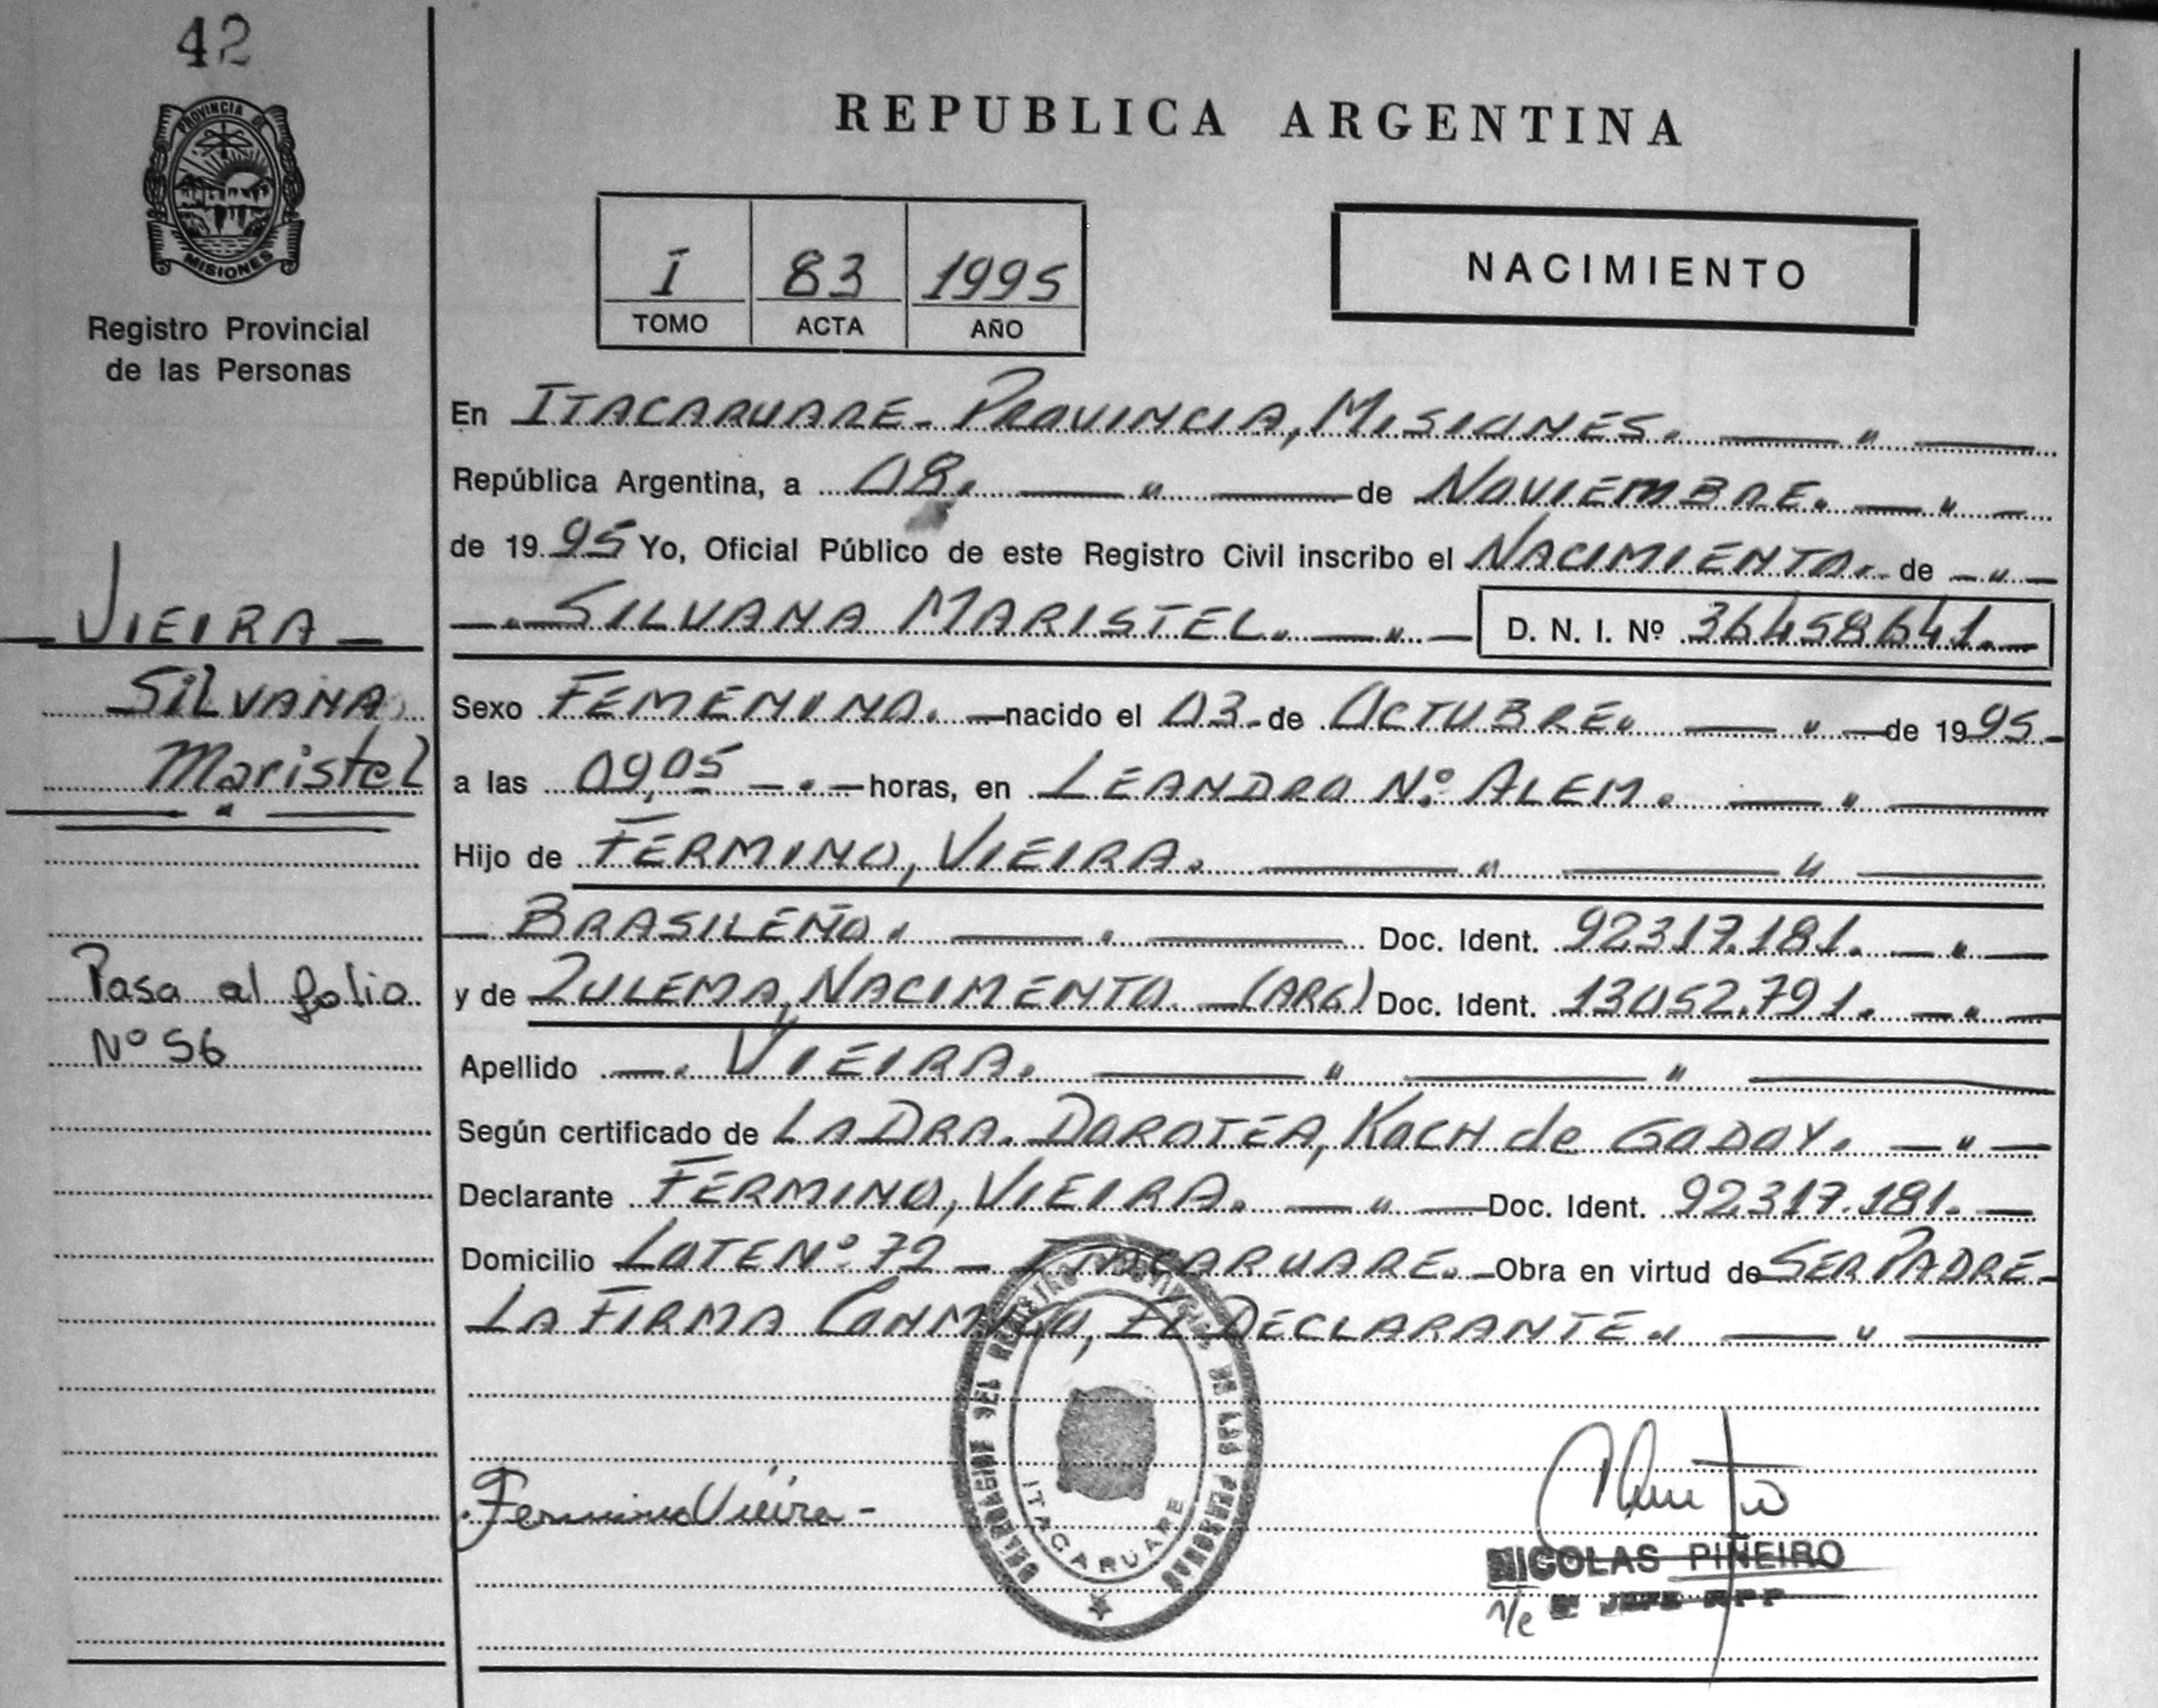 42
PROVINCIA DE
MISIONES
Registro Provincial
de las Personas
REPUBLICA ARGENTINA
I 83 1995
TOMO ACTA AÑO
NACIMIENTO
En ITACARUARE - PROVINCIA, MISIONES. — " —
República Argentina, a 08. — " — de NOVIEMBRE. — " —
de 1995 Yo, Oficial Público de este Registro Civil inscribo el NACIMIENTO. - de - " -
—. SILVANA MARISTEL. — " — D. N. I. Nº 36458641. —
VIEIRA —
SILVANA
Maristel
— " —
Sexo FEMENINO. — nacido el 03 - de OCTUBRE. — " — de 1995 -
a las 09,05 — . — horas, en LEANDRO Nº ALEM. — " —
Hijo de FERMINO, VIEIRA. — " — " —
— BRASILEÑO. — . — Doc. Ident. 92317.181. — " —
y de ZULEMA, NACIMENTO — (ARG) Doc. Ident. 13052.791. — " —
Pasa al folio
Nº 56
Apellido —. VIEIRA. — " — " —
Según certificado de LA DRA. DOROTEA, KOCH de GODOY. — " —
Declarante FERMINO, VIEIRA. — " — Doc. Ident. 92317.181. —
Domicilio LOTE Nº 72 — ITACARUARE. — Obra en virtud de SER PADRE -
LA FIRMA CONMIGO, EL DECLARANTE. — " —
DELEGACION DEL REGISTRO PROVINCIAL DE LAS PERSONAS
ITACARUARE
Fermino Vieira -
NICOLAS PIÑEIRO
JEFE RPP